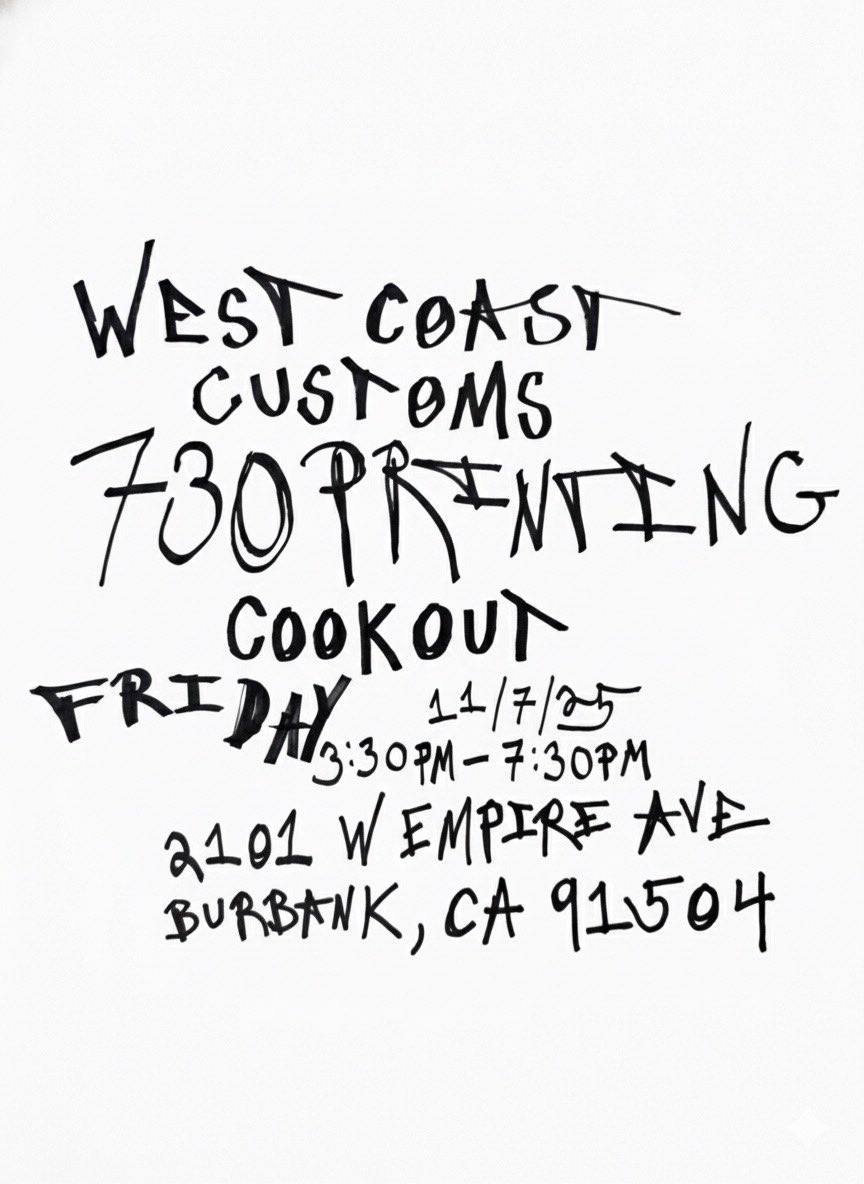 WEST COAST
CUSTOMS
730 PRINTING
COOKOUT
FRIDAY 11/7/25
3:30PM - 7:30PM
2101 W EMPIRE AVE
BURBANK, CA 91504